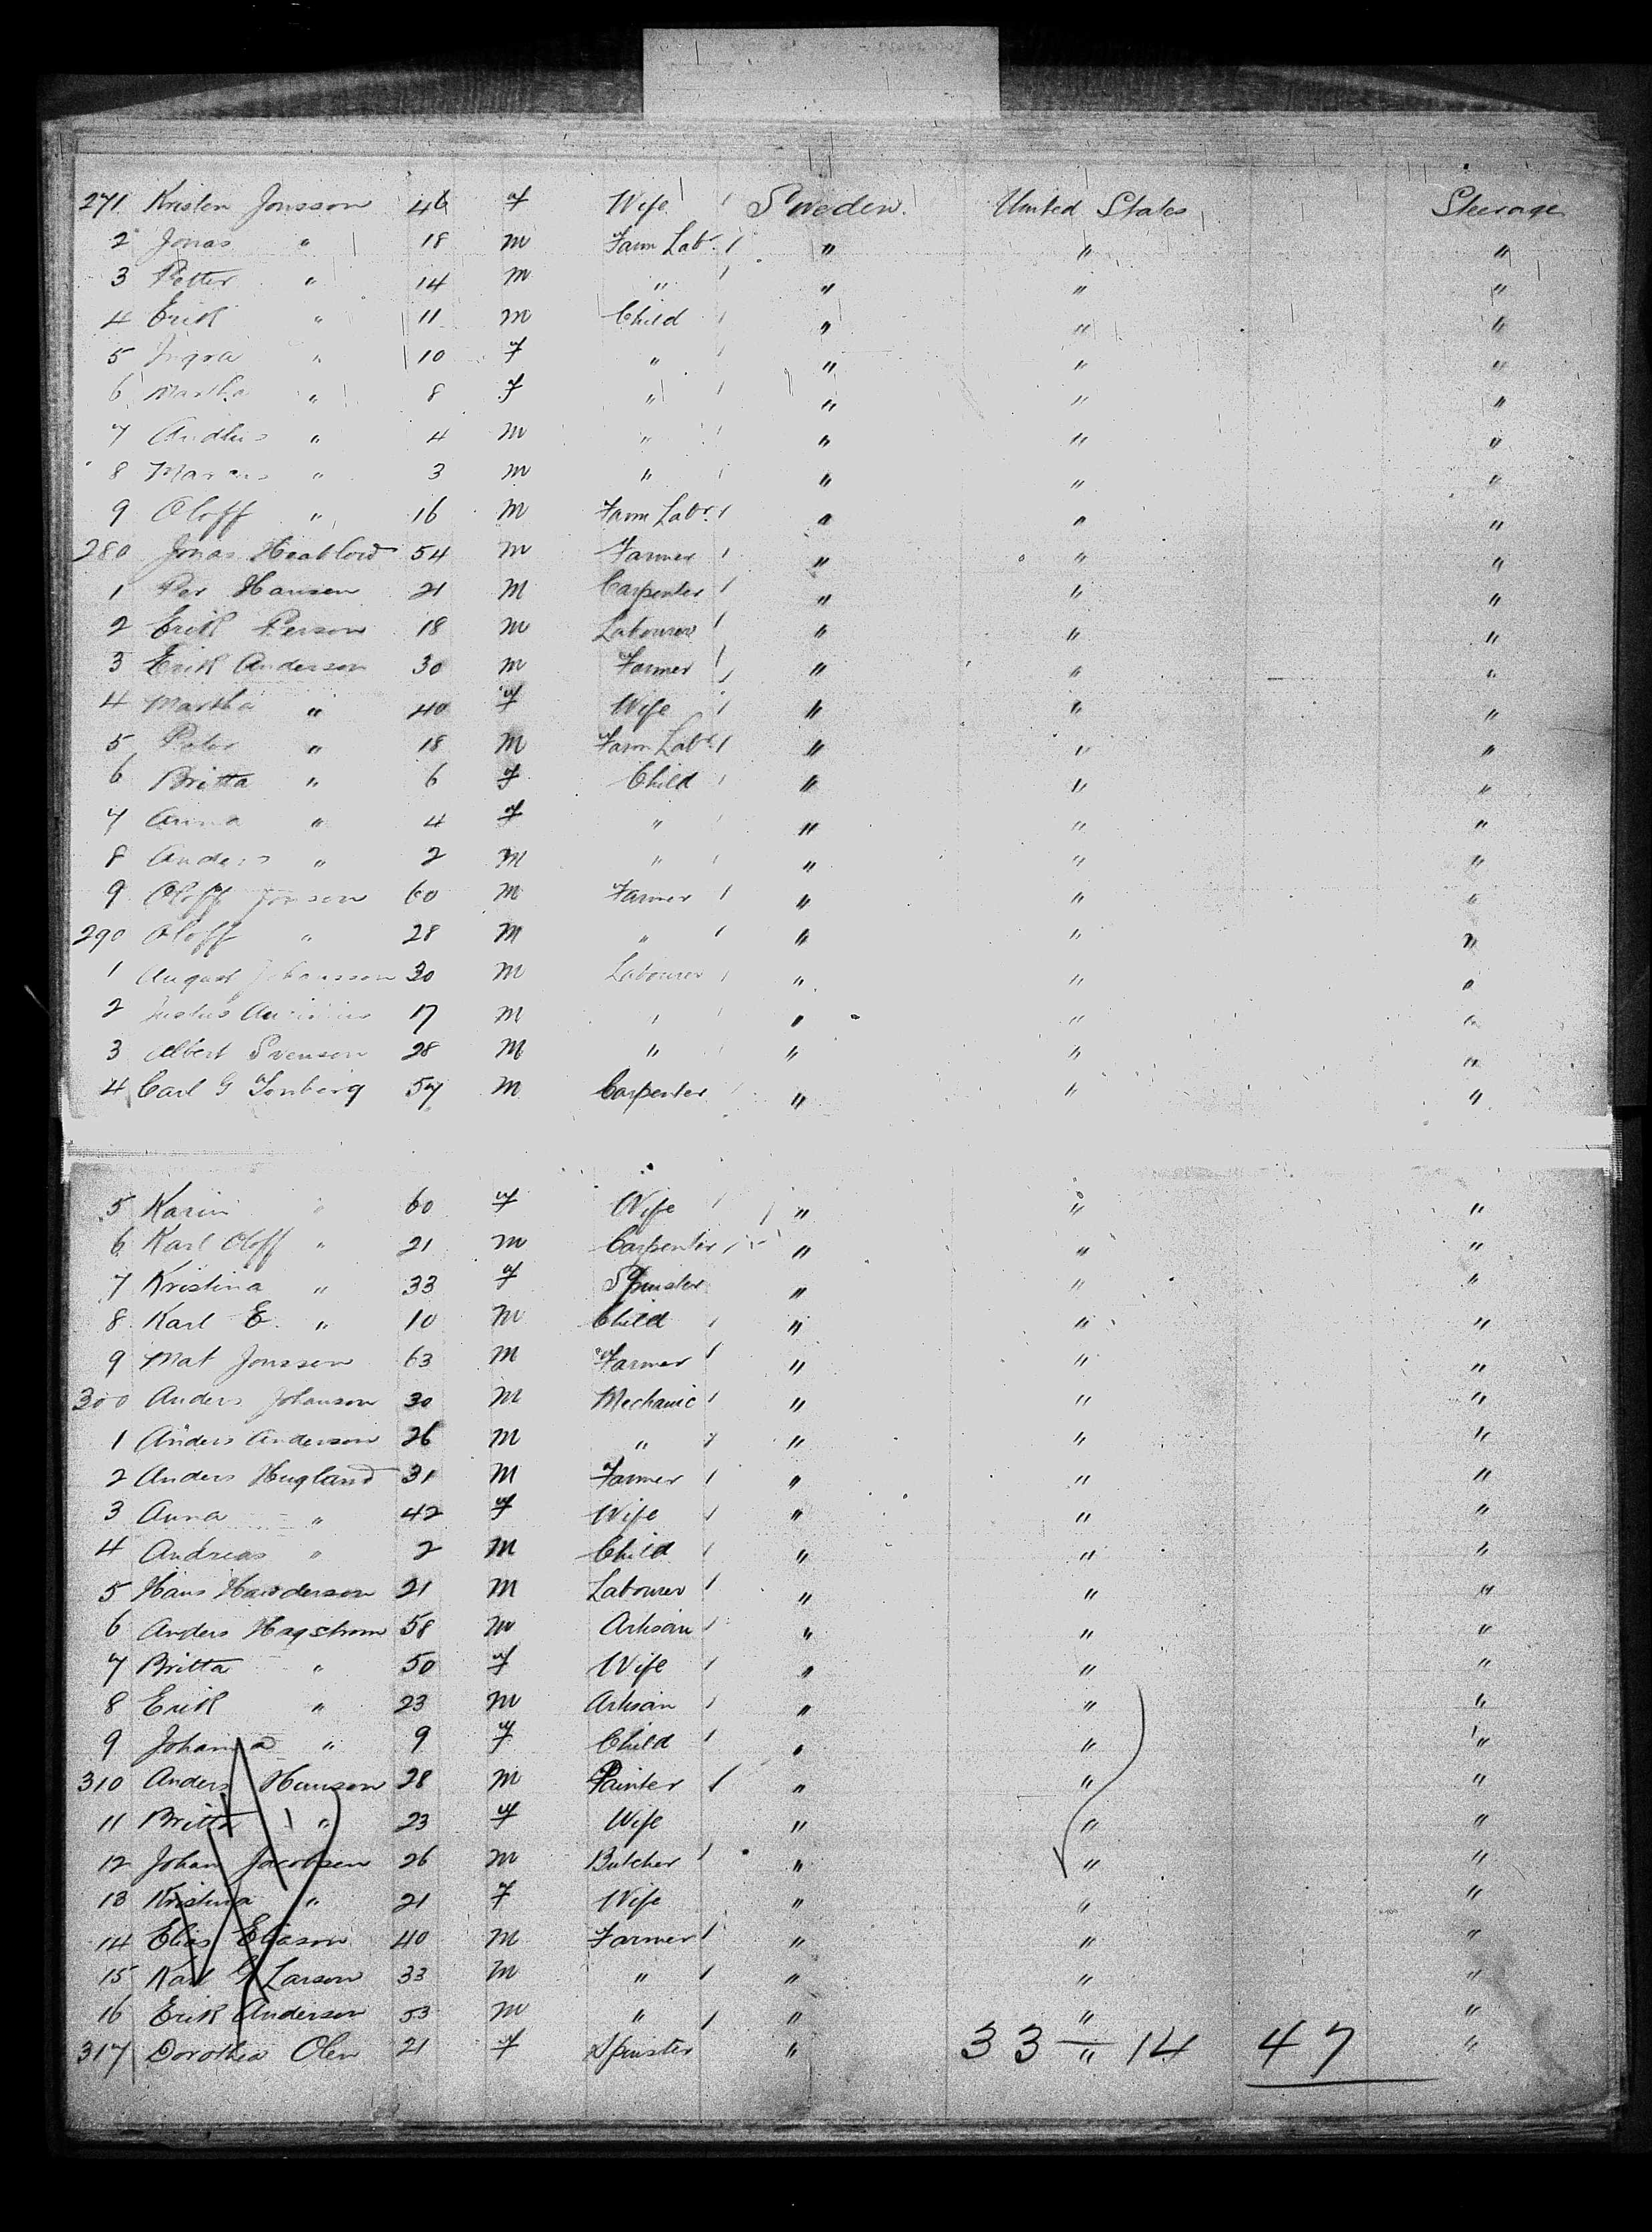 271 Kristen Jonsson 46 f Wife Sweden. United States Steerage
2 Jonas " 18 m Farm Labr. " " "
3 Petter " 14 m " " " "
4 Erik " 11 m Child " " "
5 " 10 f " " " "
6 Martha " 8 f " " " "
7 " 4 m " " " "
8 " 3 m " " " "
9 Oloff " 16 m Farm Labr. " " "
280 Jonas 54 m Farmer " " "
1 Per Hansen 21 m Carpenter " " "
2 Erik Person 18 m Labourer " " "
3 Erik Anderson 30 m Farmer " " "
4 Martha " 40 f Wife " " "
5 Peter " 18 m Farm Labr. " " "
6 Britta " 6 f Child " " "
7 Anna " 4 f " " " "
8 Anders " 2 m " " " "
9 Oloff Jonson 60 m Farmer " " "
290 Oloff " 28 m " " " "
1 August Johansson 30 m Labourer " " "
2 17 m " " " "
3 Albert Svenson 28 m " " " "
4 Carl G 57 m Carpenter " " "
5 Karin " 60 f Wife " " "
6 Karl Oloff " 21 m Carpenter " " "
7 Kristina " 33 f Spinster " " "
8 Karl E. " 10 m Child " " "
9 Mat Jonsson 63 m Farmer " " "
300 Anders Johanson 30 m Mechanic " " "
1 Anders Anderson 26 m " " " "
2 Anders Hugland 31 m Farmer " " "
3 Anna " 42 f Wife " " "
4 Andreas " 2 m Child " " "
5 Hans 21 m Labourer " " "
6 Anders Hagstrom 58 m Artisan " " "
7 Britta " 50 f Wife " " "
8 Erik " 23 m Artisan " " "
9 Johanna " 9 f Child " " "
310 Anders Hanson 28 m Painter " " "
11 Britta " 23 f Wife " " "
12 Johan Jacobsen 26 m Butcher " " "
13 Kristina " 21 f Wife " " "
14 Elias Eliason 40 m Farmer " " "
15 Karl G Larson 33 m " " " "
16 Erik Anderson 53 m " " " "
317 Dorothea Olen 21 f Spinster " " "
33 — 14 47